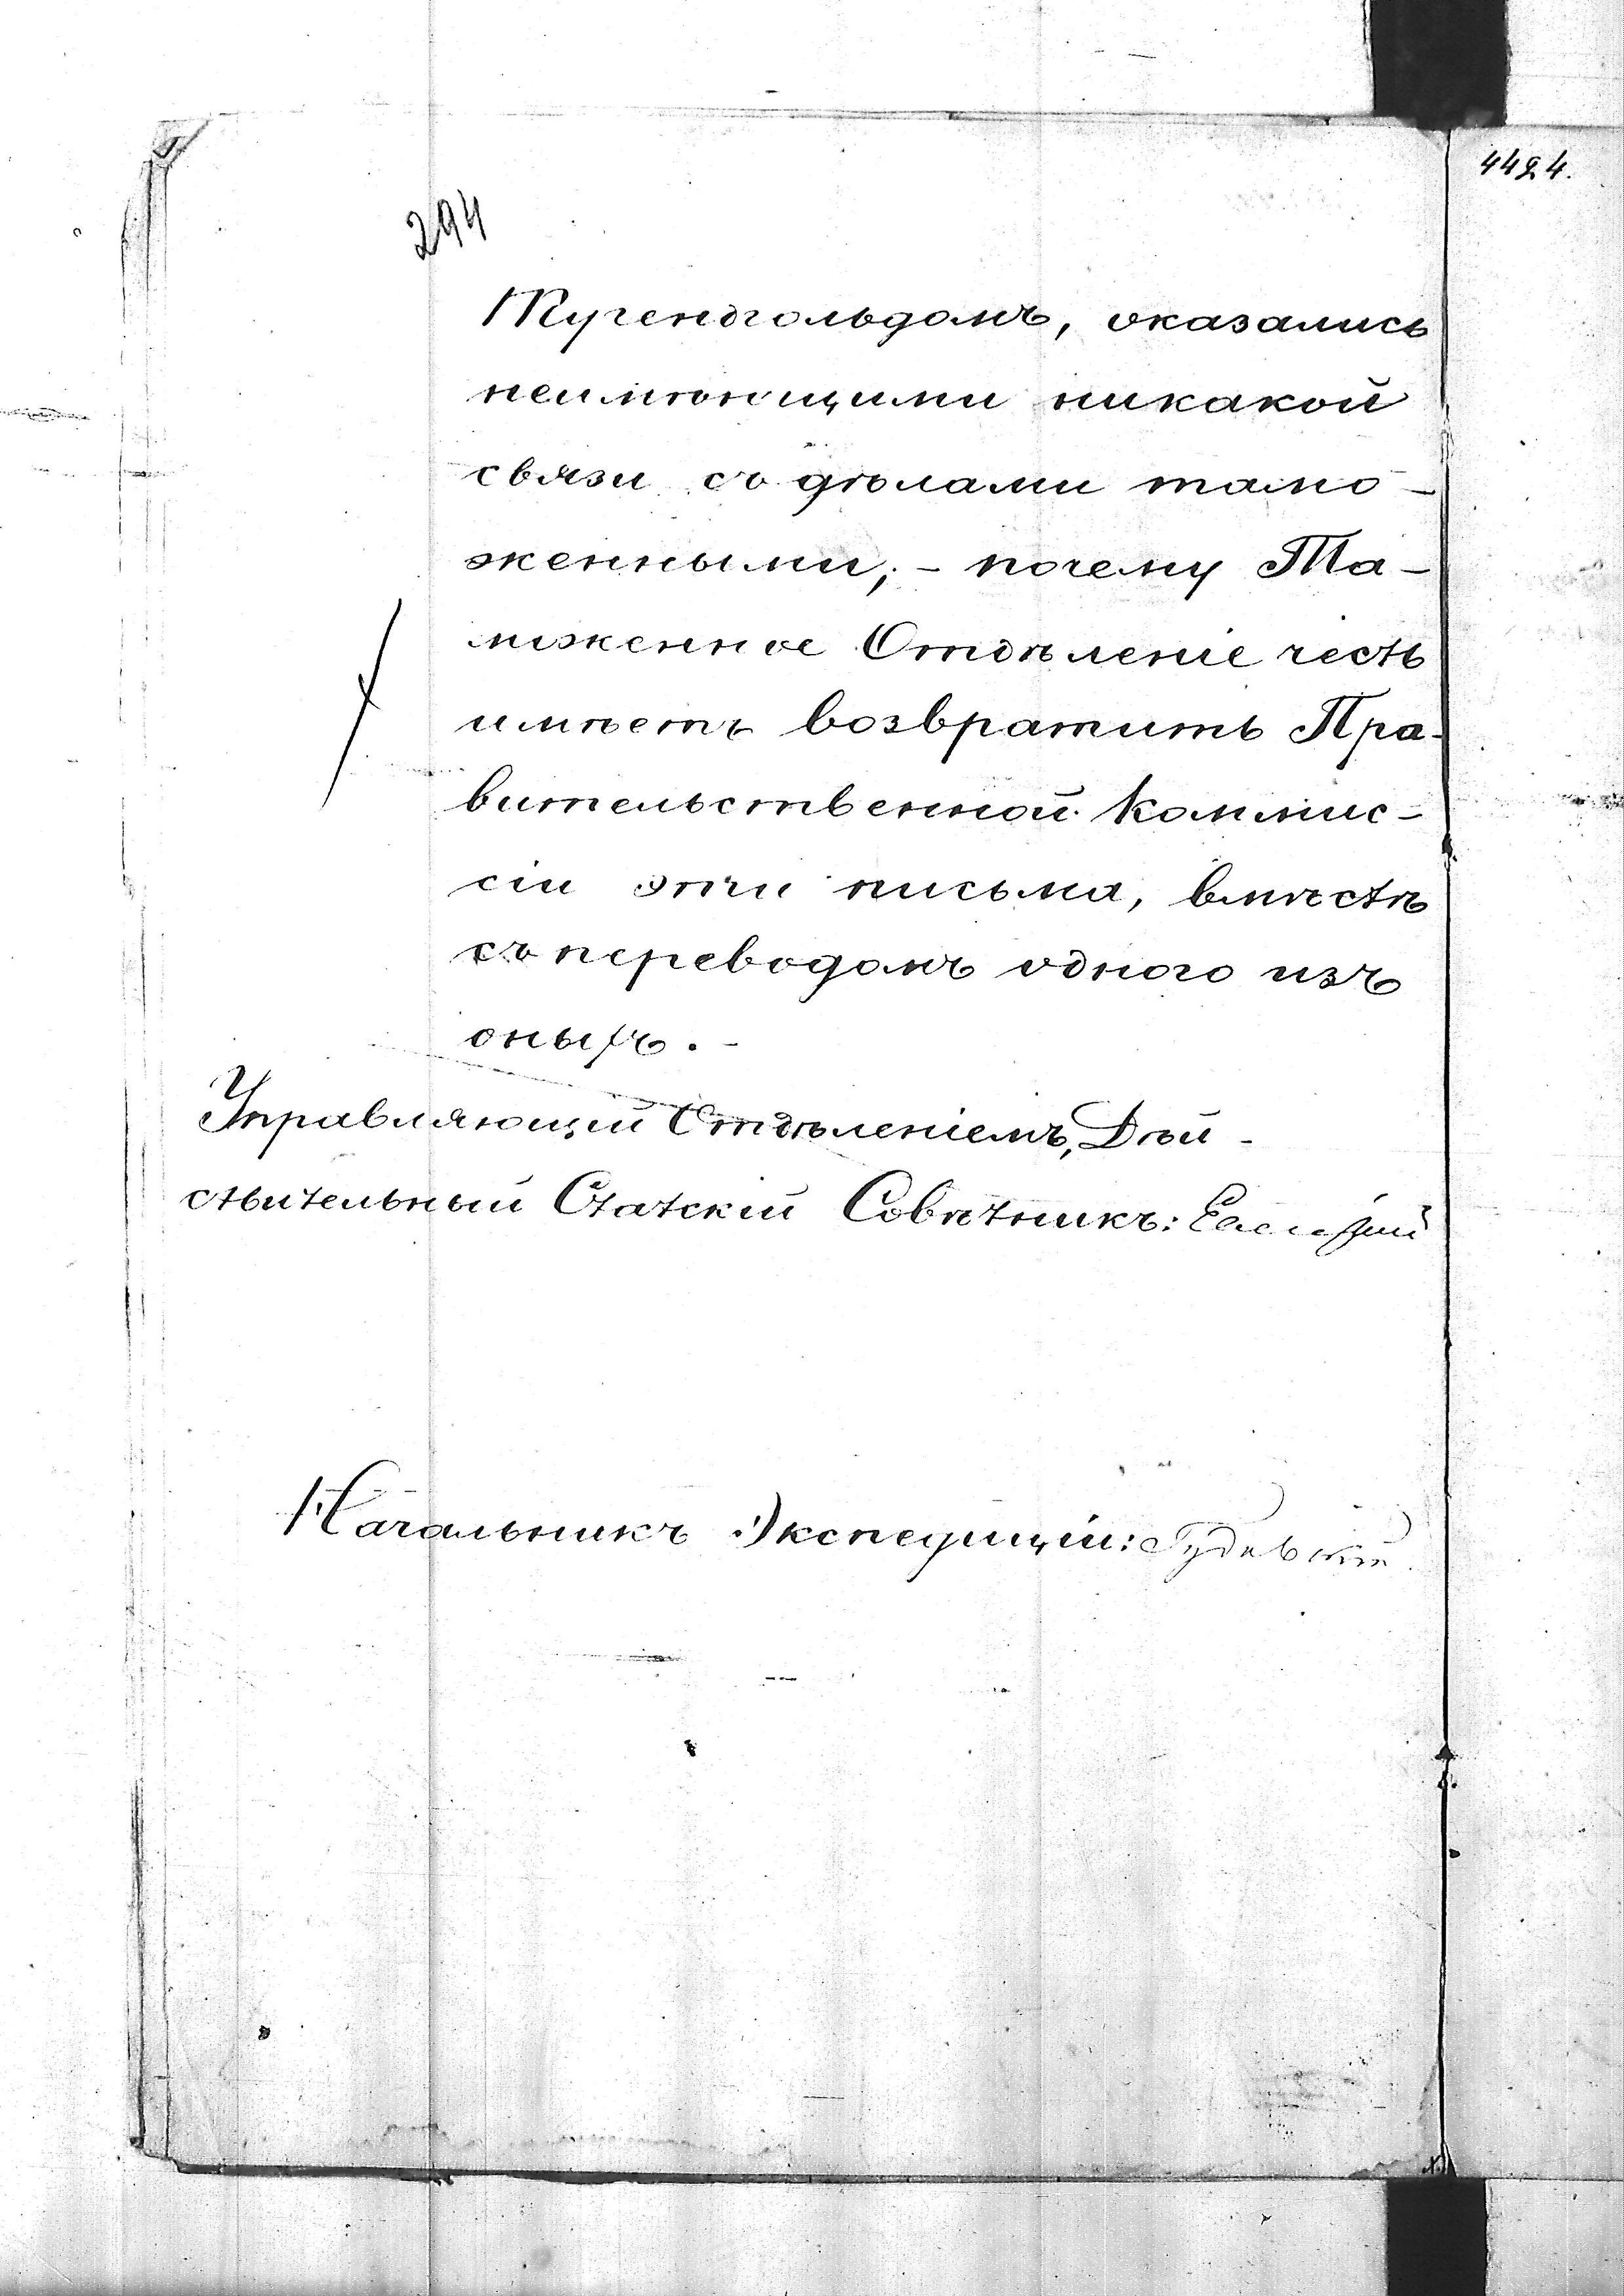 4424.
294
Тугендгольдомъ, оказались
неимѣющими никакой
связи съ дѣлами тамо-
женными; - почему Та-
моженное Отдѣленіе честь
имѣетъ возвратить Пра-
вительственной Коммис-
сіи эти письма, вмѣстѣ
съ переводомъ одного изъ
оныхъ. -
Управляющій Отдѣленіемъ, Дѣй-
ствительный Статскій Совѣтникъ:
Начальникъ Экспедиціи: